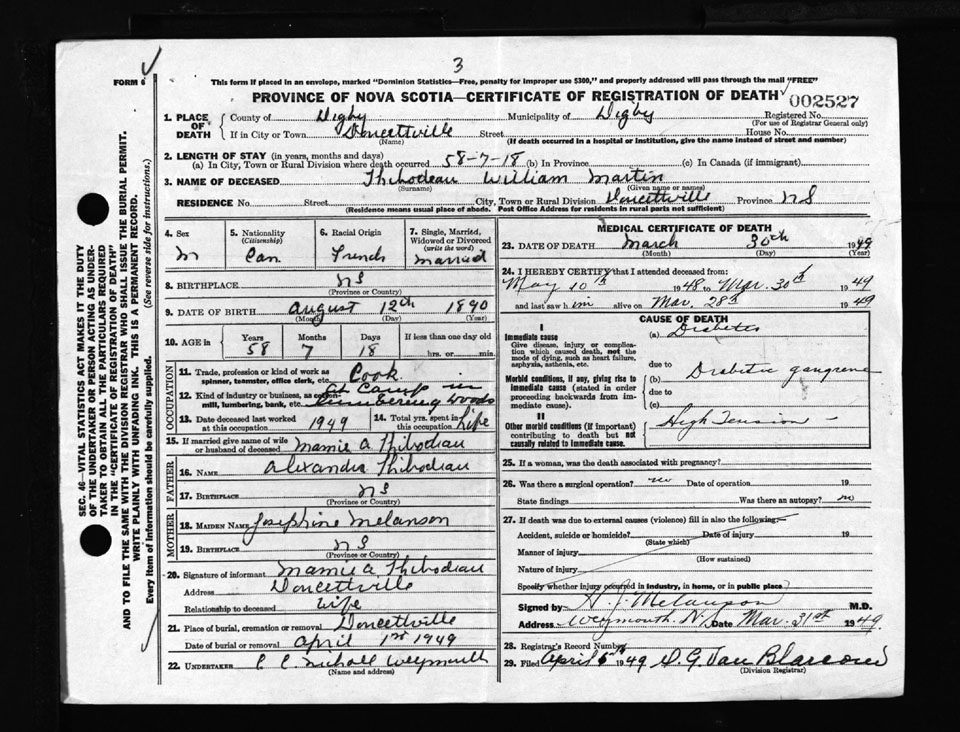 3
FORM 6
This form if placed in an envelope, marked "Dominion Statistics—Free, penalty for improper use $300," and properly addressed will pass through the mail "FREE"
PROVINCE OF NOVA SCOTIA—CERTIFICATE OF REGISTRATION OF DEATH
002527
1. PLACE OF DEATH
County of Digby Municipality of Digby Registered No.
(For use of Registrar General only)
If in City or Town Doucettville Street House No.
(Name) (If death occurred in a hospital or institution, give the name instead of street and number)
2. LENGTH OF STAY (in years, months and days)
(a) In City, Town or Rural Division where death occurred 58-7-18 (b) In Province (c) In Canada (if immigrant)
3. NAME OF DECEASED Thibodeau William Martin
(Surname) (Given name or names)
RESIDENCE No. Street City, Town or Rural Division Doucettville Province NS
(Residence means usual place of abode. Post Office Address for residents in rural parts not sufficient)
4. Sex
M
5. Nationality
(Citizenship)
Can
6. Racial Origin
French
7. Single, Married, Widowed or Divorced
(write the word)
Married
8. BIRTHPLACE NS
(Province or Country)
9. DATE OF BIRTH August 12th 1890
(Month) (Day) (Year)
10. AGE in
Years Months Days If less than one day old
58 7 18 hrs. or min.
OCCUPATION
11. Trade, profession or kind of work as spinner, teamster, office clerk, etc. Cook
12. Kind of industry or business, as cotton-mill, lumbering, bank, etc. At Camp in Lumbering Woods
13. Date deceased last worked at this occupation 1949
14. Total yrs. spent in this occupation Life
15. If married give name of wife or husband of deceased Mamie A Thibodeau
FATHER
16. NAME Alexandre Thibodeau
17. BIRTHPLACE NS
(Province or Country)
MOTHER
18. MAIDEN NAME Josephine Melanson
19. BIRTHPLACE NS
(Province or Country)
20. Signature of informant Mamie A Thibodeau
Address Doucettville
Relationship to deceased Wife
21. Place of burial, cremation or removal Doucettville
Date of burial or removal April 1st 1949
22. UNDERTAKER Weymouth
(Name and address)
MEDICAL CERTIFICATE OF DEATH
23. DATE OF DEATH March 30th 1949
(Month) (Day) (Year)
24. I HEREBY CERTIFY that I attended deceased from:
May 10th 1948 to Mar. 30th 1949
and last saw him alive on Mar. 28th 1949
CAUSE OF DEATH
I
Immediate cause
Give disease, injury or complication which caused death, not the mode of dying, such as heart failure, asphyxia, asthenia, etc.
(a) Diabetes
due to
Morbid conditions, if any, giving rise to immediate cause (stated in order proceeding backwards from immediate cause).
(b) Diabetic gangrene
due to
(c)
II
Other morbid conditions (if important) contributing to death but not causally related to immediate cause.
High Tension
25. If a woman, was the death associated with pregnancy?
26. Was there a surgical operation? no Date of operation 19
State findings Was there an autopsy? no
27. If death was due to external causes (violence) fill in also the following:
Accident, suicide or homicide? Date of injury 19
(State which)
Manner of injury
(How sustained)
Nature of injury
Specify whether injury occurred in industry, in home, or in public place
Signed by Melanson M.D.
Address Weymouth, N.S. Date Mar. 31st 1949
28. Registrar's Record Number
29. Filed April 5th 1949 Van Blarcom
(Division Registrar)
SEC. 46—VITAL STATISTICS ACT MAKES IT THE DUTY
OF THE UNDERTAKER OR PERSON ACTING AS UNDER-
TAKER TO OBTAIN ALL THE PARTICULARS REQUIRED
IN THE "CERTIFICATE OF REGISTRATION OF DEATH"
AND TO FILE THE SAME WITH THE DIVISION REGISTRAR WHO SHALL ISSUE THE BURIAL PERMIT.
WRITE PLAINLY WITH UNFADING INK. THIS IS A PERMANENT RECORD.
Every item of information should be carefully supplied. (See reverse side for instructions.)